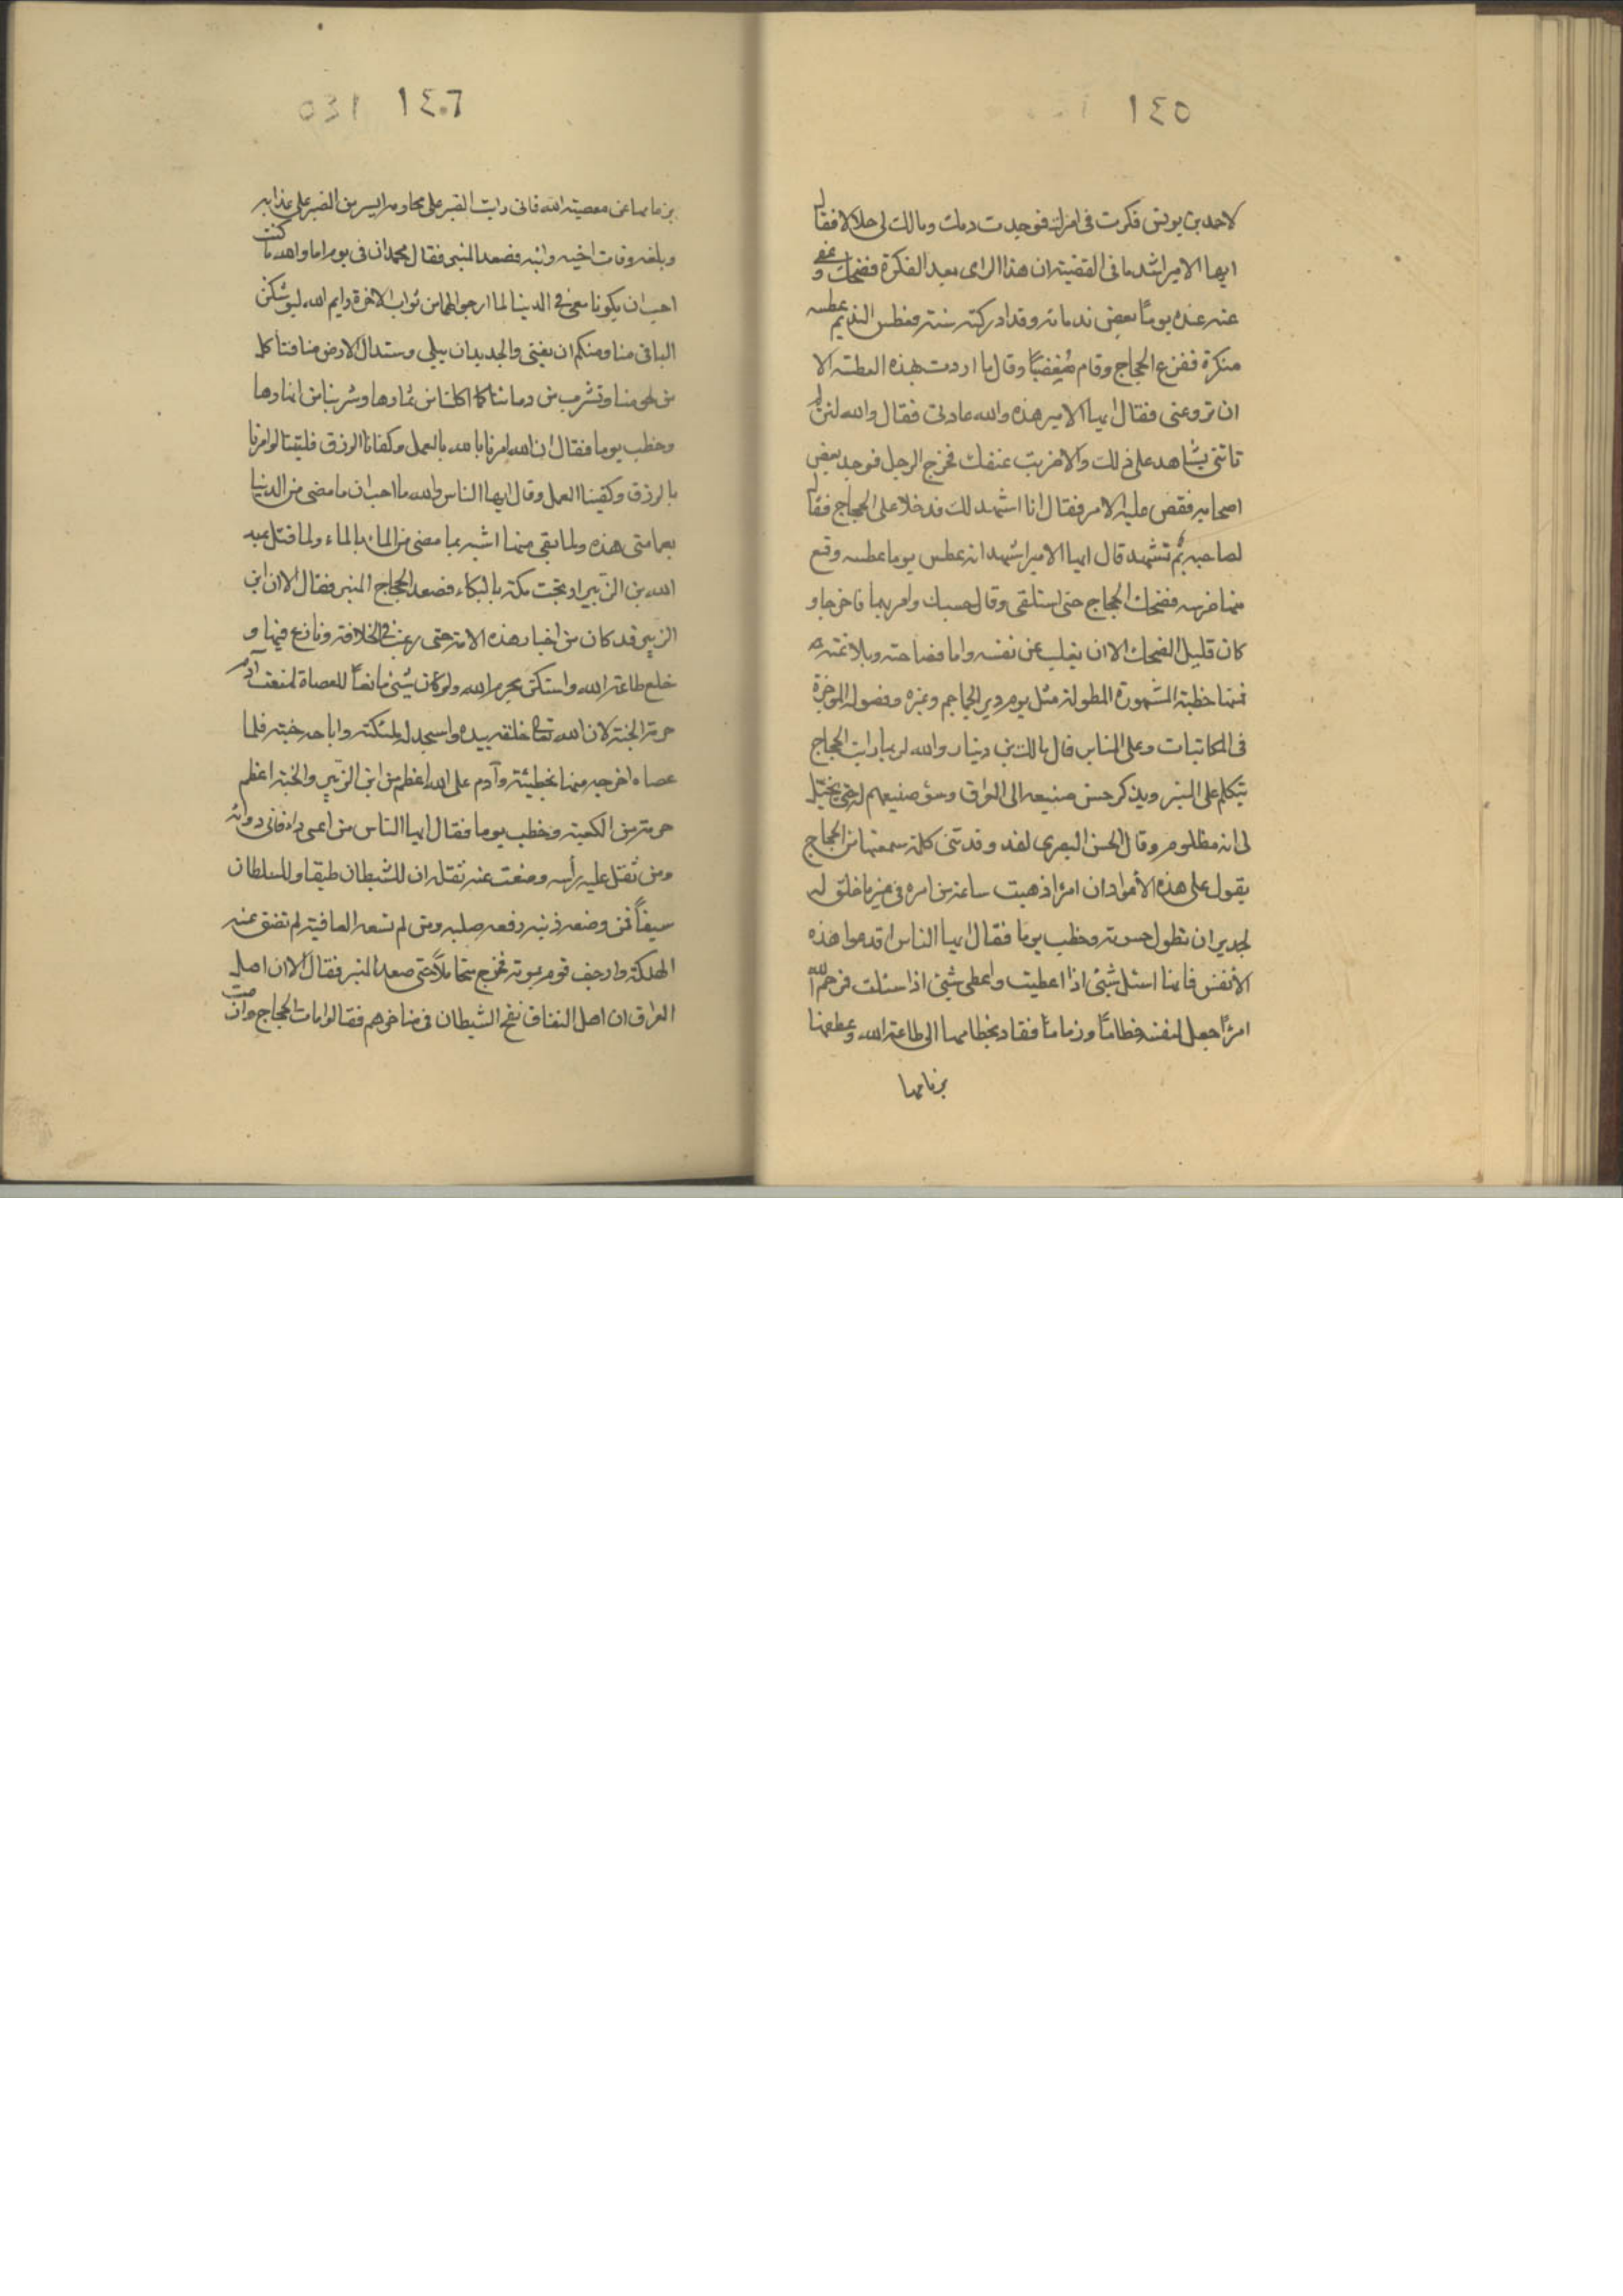 ١٤٥
لاحد بن يونس فكرت فى امرك فوجدت دمك ومالك لى حلالا فقال
ايها الامير اشد ما فى القضية ان هذا الراى بعد الفكرة فضحك وعفى
عنه عنده يوماً بعض ندمائه وقد ادركته سنة فعطس النديم عطسه
منكرة ففزع الحجاج وقام مُغضباً وقال ما اردت بهذه العطسة الا
ان تروعنى فقال ايها الامير هذه والله عادتى فقال والله لئن لم
تاتنى بشاهد على ذلك والا ضربت عنقك فخرج الرجل فوجد بعض
اصحابه فقص عليه الامر فقال انا اشهد لك فدخلا على الحجاج فقال
لصاحبه بم تشهد قال ايها الامير اشهد انه عطس يوما عطسه وقع
منها ضرسه فضحك الحجاج حتى استلقى وقال حسبك وامر بهما فاخرجا و
كان قليل الضحك الا ان يغلب عن نفسه واما فصاحته وبلاغته
فمنها خطبة المشهورة المطولة مثل يوم دير الجماجم وغيره وفصوله الموجزة
فى المكاتبات وعلى الناس قال مالك بن دينار والله لربما رايت الحجاج
يتكلم على المنبر ويذكر حسن صنيعه الى العراق وسؤ صنيعهم له حتى يخيّل
لى انه مظلوم وقال الحسن البصرى لقد وقذتنى كلمة سمعتها من الحجاج
يقول على هذه الأعواد ان امرًا ذهبت ساعة من امره فى غير ما خلق له
لجدير ان تطول حسرته وخطب يوما فقال ايها الناس اقدعوا هذه
الأنفس فانها اسئل شئ اذا اعطيت واعطى شئ اذا سئلت فرحم الله
امرًا جعل لنفسه خطامًا وزمامًا فقاد بخطامها الى طاعة الله وعطفها
بزمامها
١٤٦
بزمامها عن معصية الله فانى رايت الصبر على محارمه ايسر من الصبر على عذابه
وبلغه وفات اخيه وابنه فصعد المنبر فقال محمدان فى يوم اما والله ما كنت
احب ان يكونا معى فى الدنيا لما ارجو لهما من ثواب الاخرة وايم الله ليوشكن
الباقى منا ومنكم ان يفنى والجديدان يبلى وستدال الارض منا فتأكل
من لحومنا وتشرب من دمائنا كما اكلنا من ثمارها وشربنا من انهارها
وخطب يوما فقال ان الله امرنا بالعمل وكفانا الرزق فليتنا لو امرنا
بالرزق وكفينا العمل وقال ايها الناس والله ما احب ان ما مضى من الدنيا
بعمامتى هذه ولما بقى منها اشبه بما مضى من الماء بالماء ولما قتل عبد
الله بن الزبير ارتجت مكة بالبكاء فصعد الحجاج المنبر فقال الا ان ابن
الزبير قد كان من اخيار هذه الامة حتى رغب فى الخلافة ونازع فيها و
خلع طاعة الله واستكن بحرم الله ولو كان شئ مانعاً للعصاة لمنعت آدم
حرمة الجنة لان الله تعالى خلقه بيده واسجد له ملئكته واباحه جنته فلما
عصاه اخرجه منها بخطيئته وآدم على الله اعظم من ابن الزبير والجنة اعظم
حرمة من الكعبة وخطب يوما فقال ايها الناس من اعيى داءه فانى دوائه
ومن ثقل عليه رأسه وضعت عنه ثقله ان للشيطان طيفا وللسلطان
سيفاً فمن وضعه ذنبه رفعه صلبه ومن لم تسعه العافية لم تضق عنه
الهلكة وارجف قوم بموته فخرج متحاملاً حتى صعد المنبر فقال الا ان اهل
العراق ان اهل النفاق نفخ الشيطان فى مناخرهم فقالوا مات الحجاج وان مت